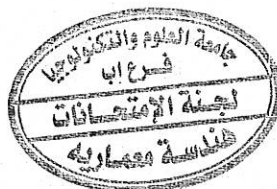 جامعة العلوم والتكنولوجيا
فرع إب
لجنة الإمتحانات
هندسة معماريه